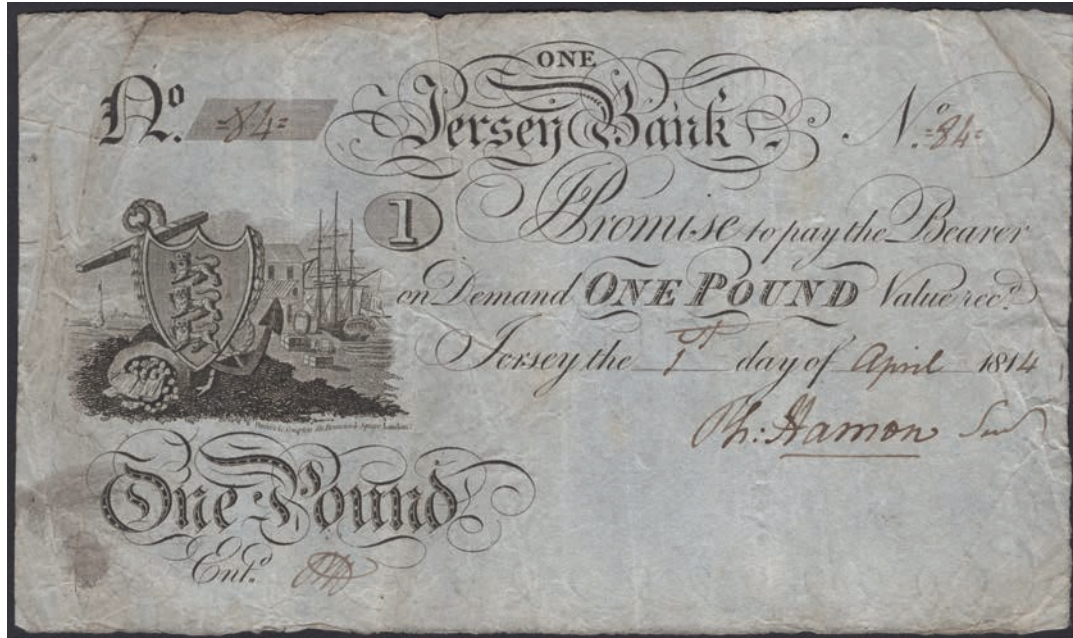 ONE
No. =84= Jersey Bank No. =84=
1 I Promise to pay the Bearer
on Demand ONE POUND Value recd.
Jersey the 1st day of April 1814
Ph: Hamon Senr
London
One Pound
Entd.